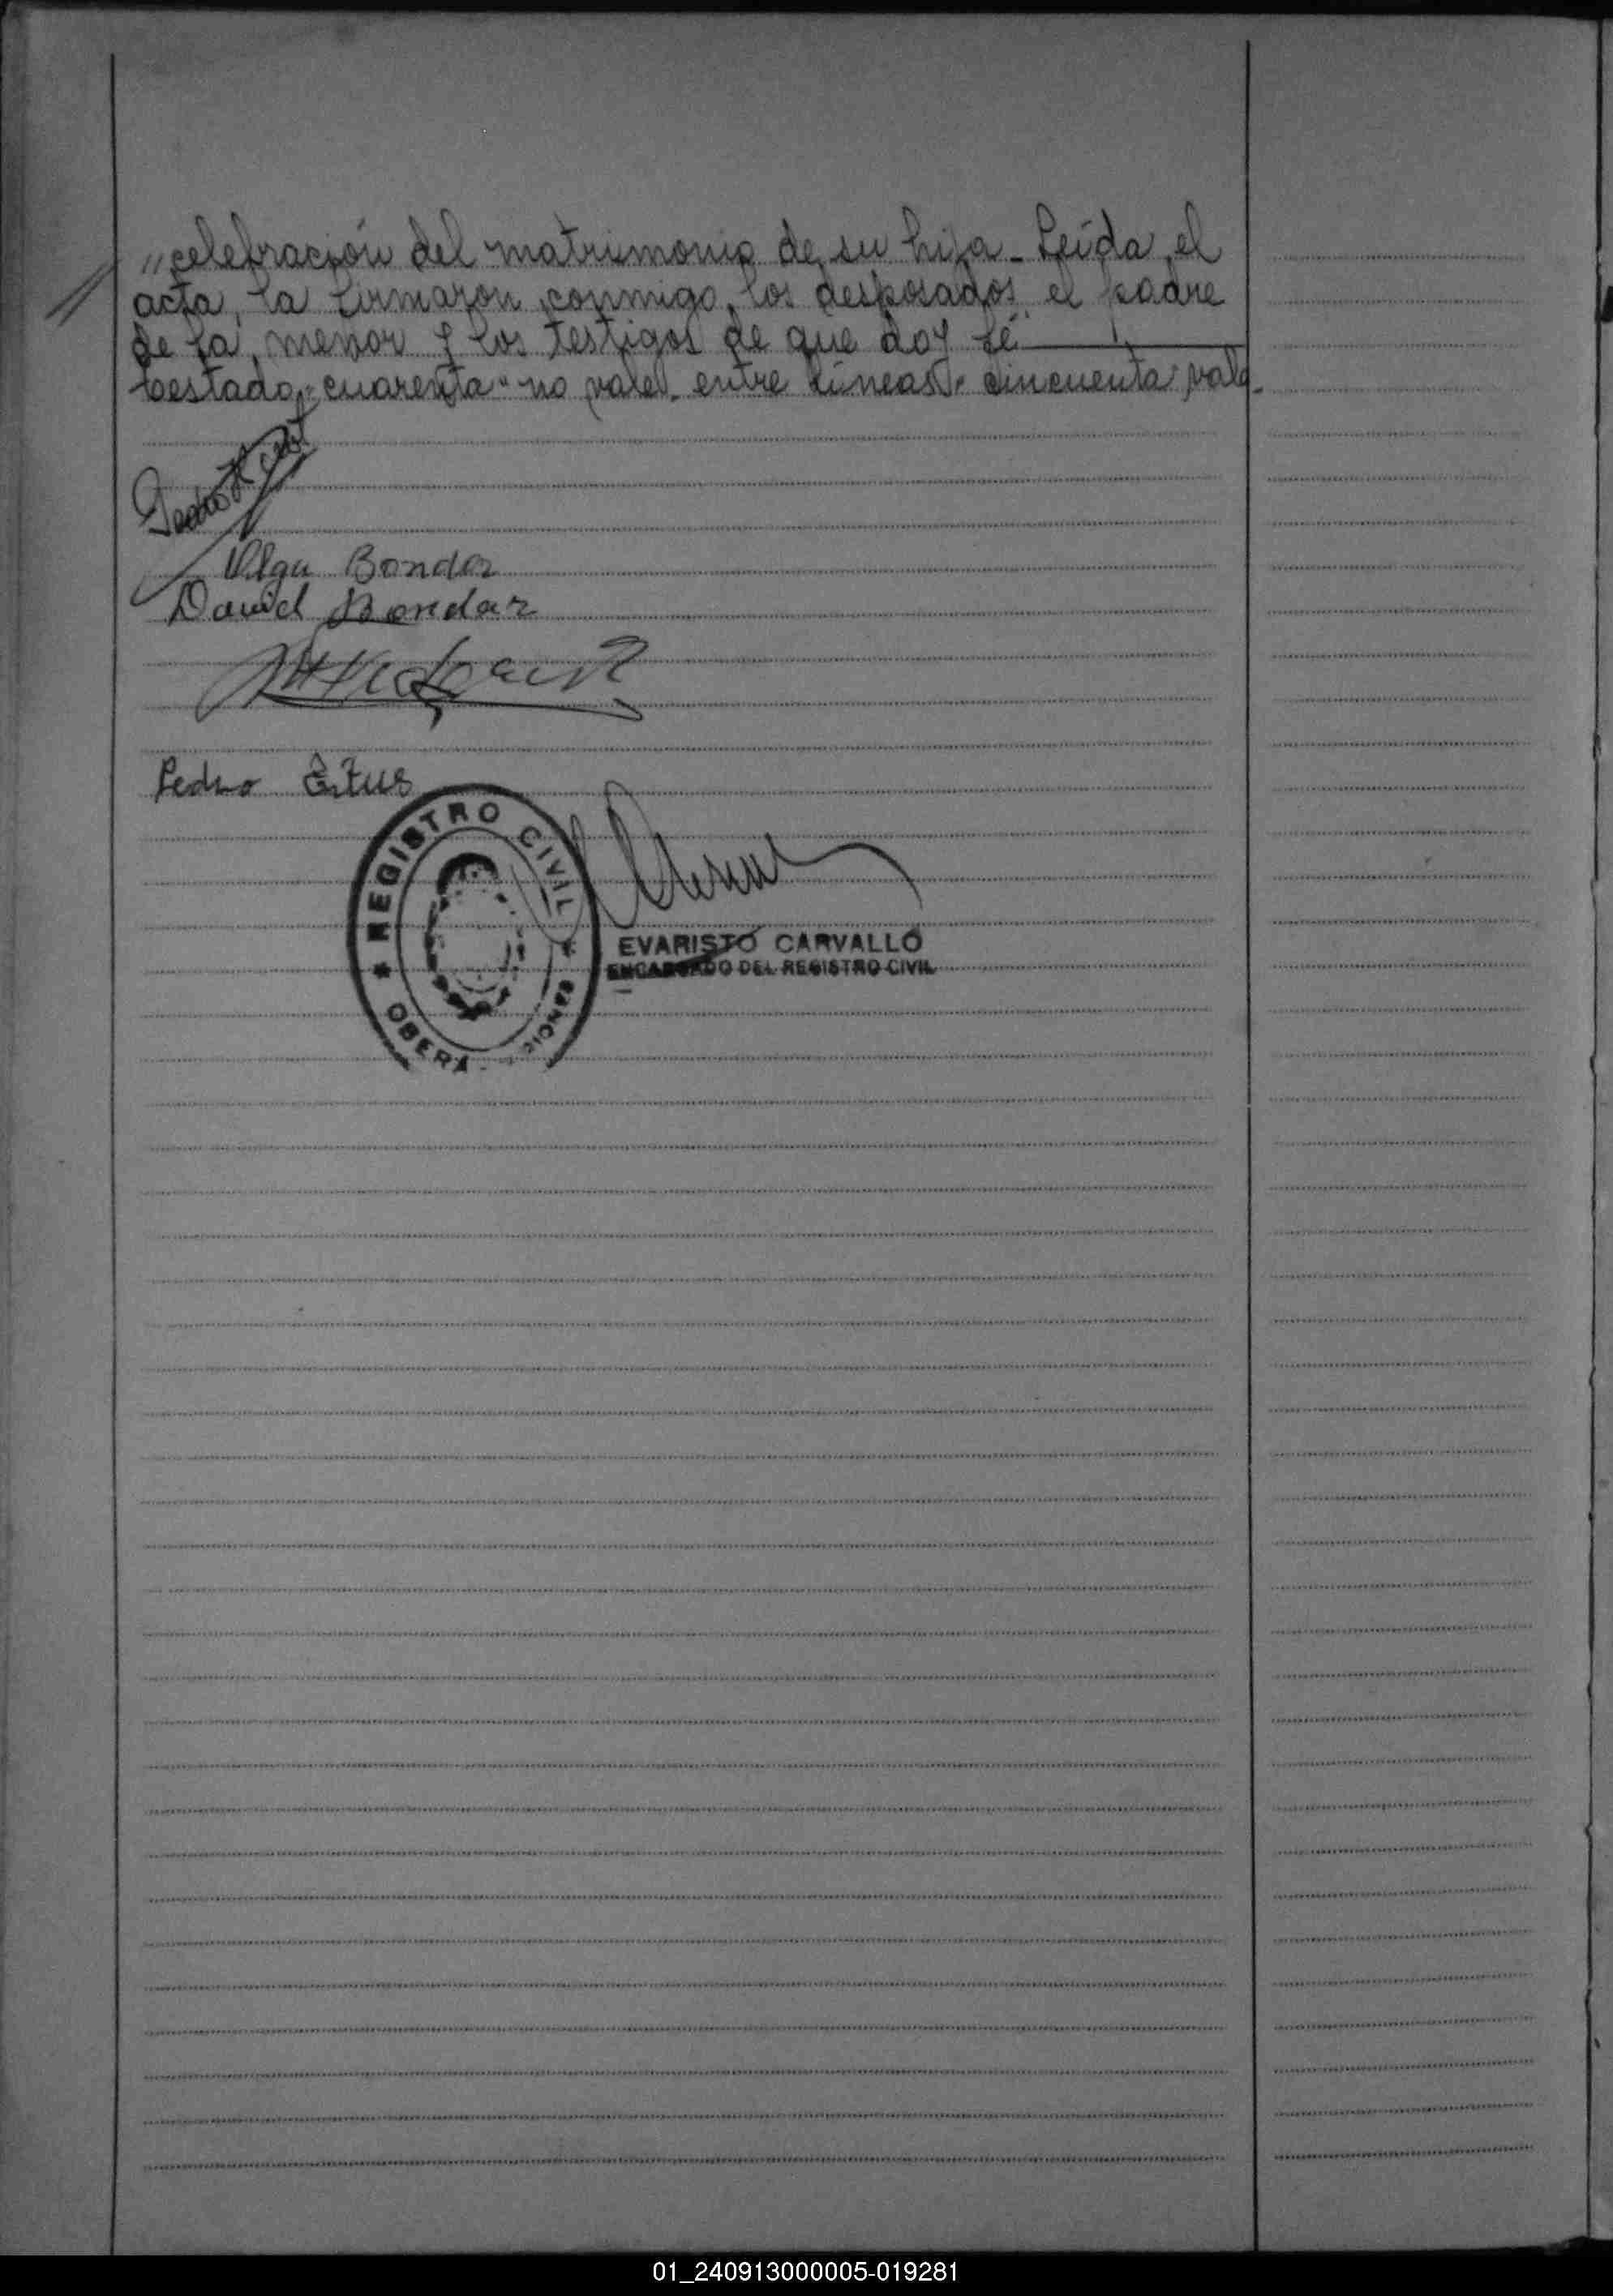 "celebración del matrimonio de su hija - Leída el
acta, la firmaron conmigo, los desposados el padre
de la menor y los testigos de que doy fé
testado "cuarenta" no vale. entre líneas "cincuenta" vale.
Pedro
Olga Bondar
David Bondar
Pedro Titus
REGISTRO CIVIL
OBERA
EVARISTO CARVALLO
ENCARGADO DEL REGISTRO CIVIL
01_240913000005-019281